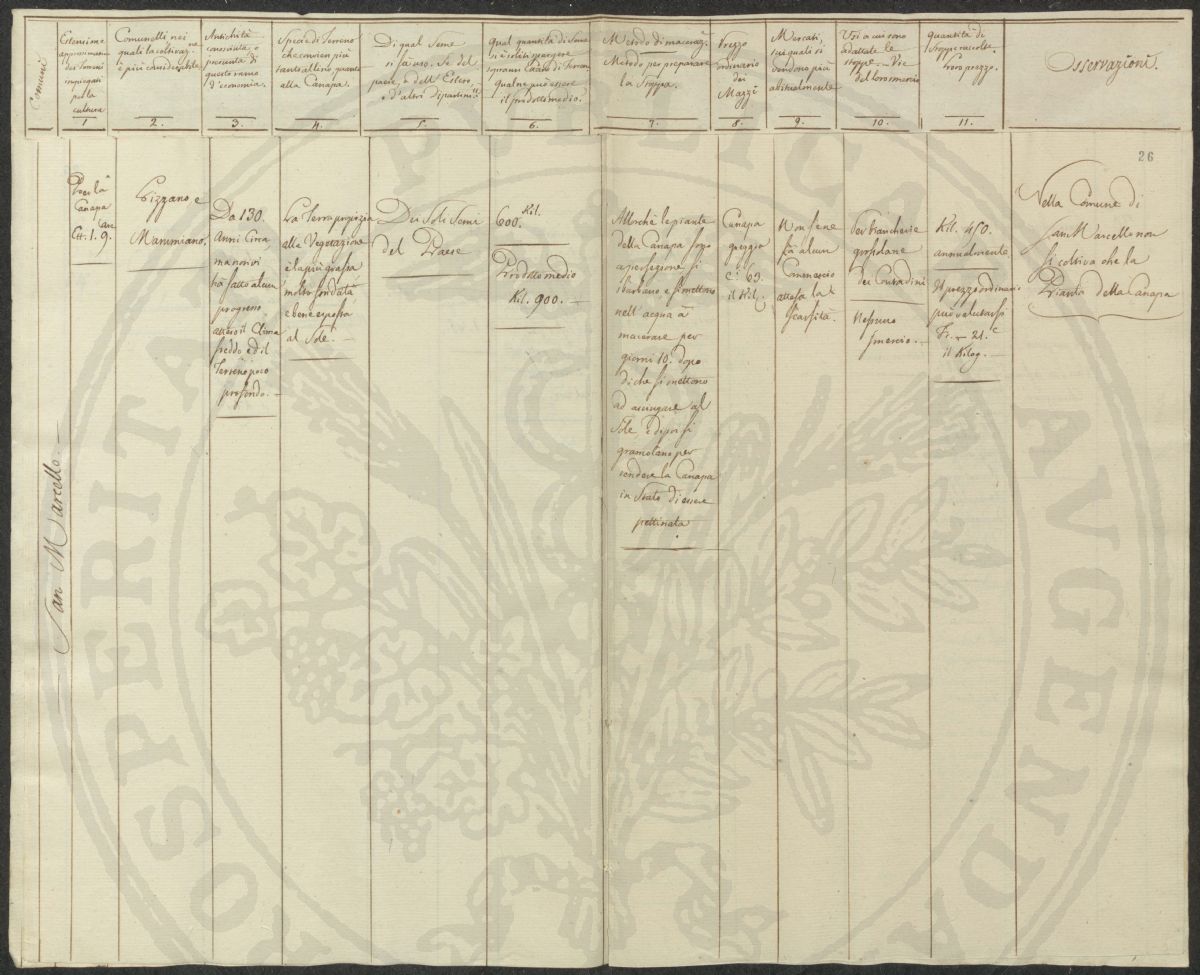 Comuni
Estensione
approssimativa
dei Terreni
impiegati
per la
cultura
1
Comunelli nei
quali la coltivaz.ne
è più considerabile
2.
Antichità
conosciuta, o
presunta di
questo ramo
d'economia.
3.
Specie di Terreno
che convien più
tanto al Lino, quanto
alla Canapa.
4.
Di qual Seme
si fà uso. Se del
paese, o dell'Estero,
o d'altri Dipartim.ti
5.
Qual quantità di Seme
si è soliti spargere
sopra un dato di Terreno
qual ne può essere
il prodotto medio.
6.
Metodo di maceraz.
Metodo per preparare
la Stoppa.
7.
Prezzo
ordinario
dei
Mazzi
8.
Mercati,
sui quali si
vendono più
abitualmente
9.
Usi a cui sono
adattate le
stoppe. Vie
del loro smercio
10.
Quantità di
Stoppe raccolte.
Loro prezzo.
11.
Osservazioni.
26
San Marcello.
Per la
Canapa
Ett. 1. Are 9.
Lizzano e
Mammiano.
Da 130.
Anni Circa
ma non vi
hà fatto alcun
progresso
atteso il Clima
freddo ed il
Terreno poco
profondo.
La Terra propizia
alla Vegetazione
è la più grassa
molto fondata
e bene esposta
al Sole.
Dei Soli Semi
del Paese
600. Kil.
Prodotto medio
Kil. 900.
Allorchè le piante
della Canapa sono
a perfezione si
sbarbano e si mettono
nell'acqua a
macerare per
giorni 10. dopo
di che si mettono
ad asciugare al
Sole, e dipoi si
gramolano per
rendere la Canapa
in Stato di essere
pettinata
Canapa
greggia
C.i 63.
il Kil.
Non se ne
fà alcun
Commercio
attesa la
Scarsità.
Per biancherie
grossolane
dei Contadini
Nessuno
smercio.
Kil. 450.
annualmente.
Il prezzo ordinario
può valutarsi
Fr. - 21. c
il Kilog.
Nella Comune di
San Marcello non
si coltiva che la
Pianta della Canapa